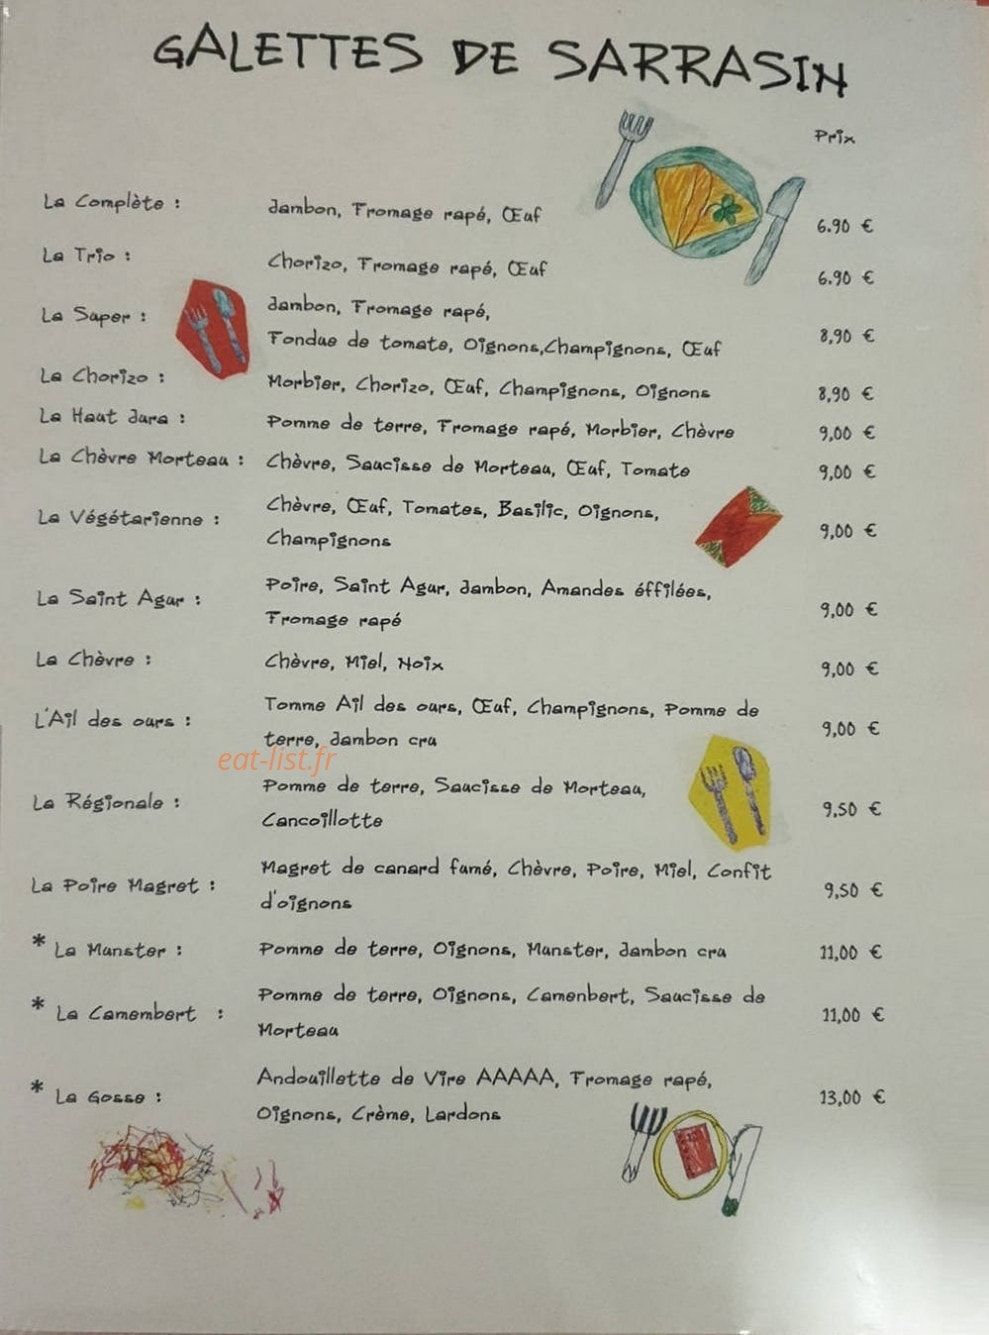 GALETTES DE SARRASIN
Prix
La Complète : Jambon, Fromage rapé, Œuf 6.90 €
La Trio : Chorizo, Fromage rapé, Œuf 6.90 €
La Super : Jambon, Fromage rapé,
Fondue de tomate, Oignons,Champignons, Œuf 8,90 €
La Chorizo : Morbier, Chorizo, Œuf, Champignons, Oignons 8,90 €
La Haut Jura : Pomme de terre, Fromage rapé, Morbier, Chèvre 9,00 €
La Chèvre Morteau : Chèvre, Saucisse de Morteau, Œuf, Tomate 9,00 €
La Végétarienne : Chèvre, Œuf, Tomates, Basilic, Oignons,
Champignons 9,00 €
La Saint Agur : Poire, Saint Agur, Jambon, Amandes éffilées,
Fromage rapé 9,00 €
La Chèvre : Chèvre, Miel, Noix 9,00 €
L'Ail des ours : Tomme Ail des ours, Œuf, Champignons, Pomme de
terre, Jambon cru 9,00 €
eat-list.fr
La Régionale : Pomme de terre, Saucisse de Morteau,
Cancoillotte 9,50 €
La Poire Magret : Magret de canard fumé, Chèvre, Poire, Miel, Confit
d'oignons 9,50 €
* La Munster : Pomme de terre, Oignons, Munster, Jambon cru 11,00 €
* La Camembert : Pomme de terre, Oignons, Camenbert, Saucisse de
Morteau 11,00 €
* La Gosse : Andouillette de Vire AAAAA, Fromage rapé,
Oignons, Crème, Lardons 13,00 €